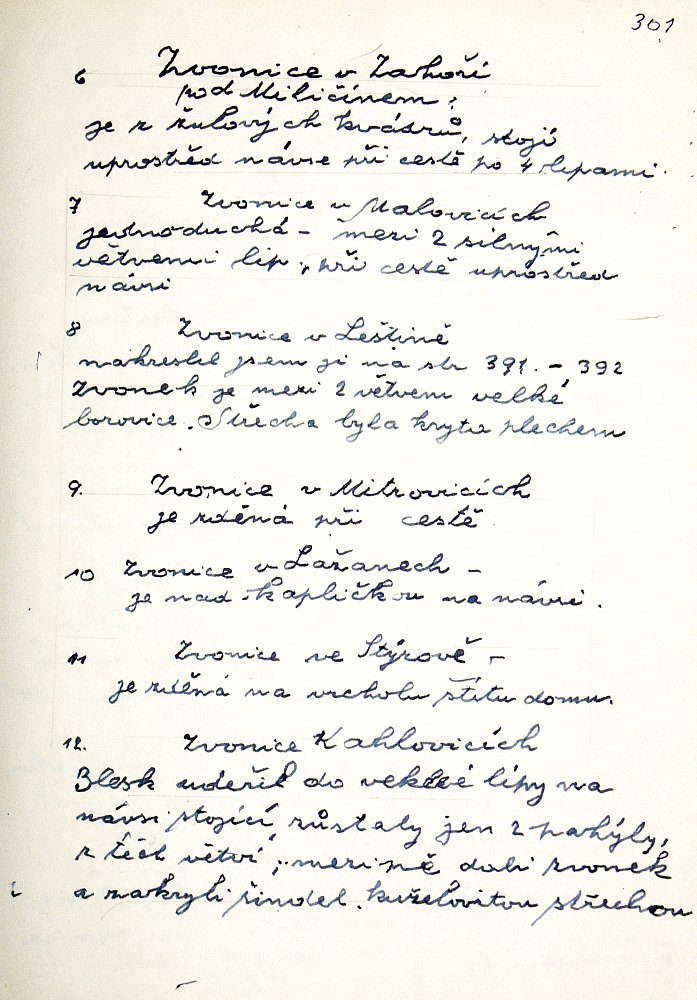 301
6 Zvonice v Zahoří
pod Miličínem;
je z žulových kvádrů, stojí
uprostřed návse při cestě po 4 lipami.
7 Zvonice v Malovicích
jednoduchá – mezi 2 silnými
větvemi lip, při cestě uprostřed
návsi
8 Zvonice v Leštině
nakreslil jsem ji na str 391. – 392
zvonek je mezi 2 větvem velké
borovice. Střecha byla kryta plechem
9. Zvonice v Mitrovicích
je zděná při cestě
10 Zvonice v Lažanech –
je nad kapličkou na návsi.
11 Zvonice ve Stýrově –
je zděná na vrcholu štítu domu.
12. Zvonice Kahlovicích
Blesk udeřil do veké lípy na
návsi stojící, zůstaly jen 2 pahýly,
z těch větví, mezi ně dali zvonek
a zakryli šindel. kuželovitou střechou